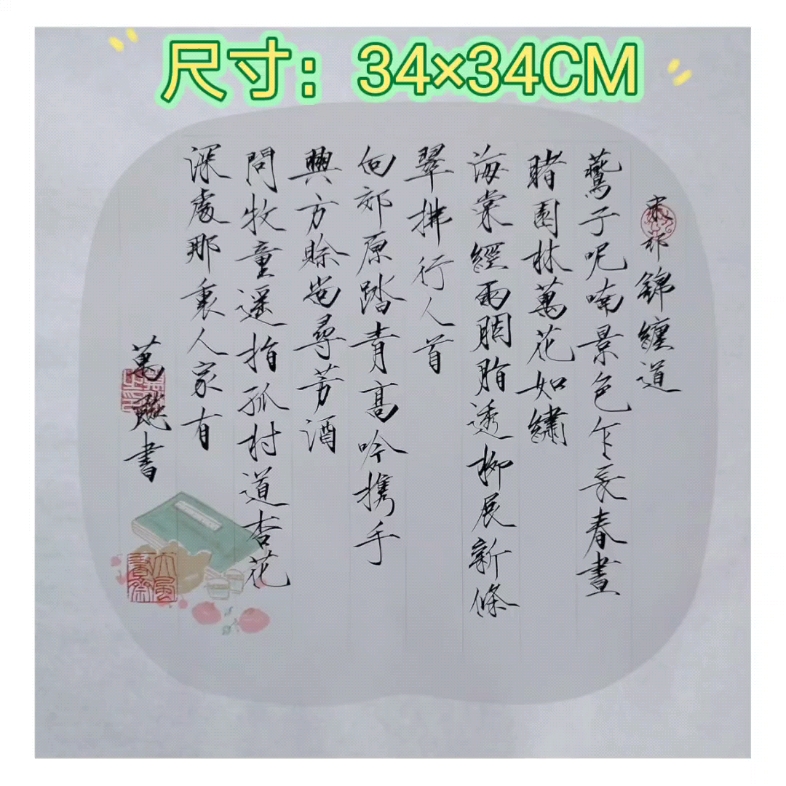 尺寸：34×34CM
宋祁錦纏道
鷰子呢喃景色乍長春晝
睹園林萬花如繡
海棠經雨胭脂透柳展新條
翠拂行人首
向郊原踏青高吟携手
興方賒尚尋芳酒
問牧童遥指孤村道杏花
深處那裏人家有
萬書